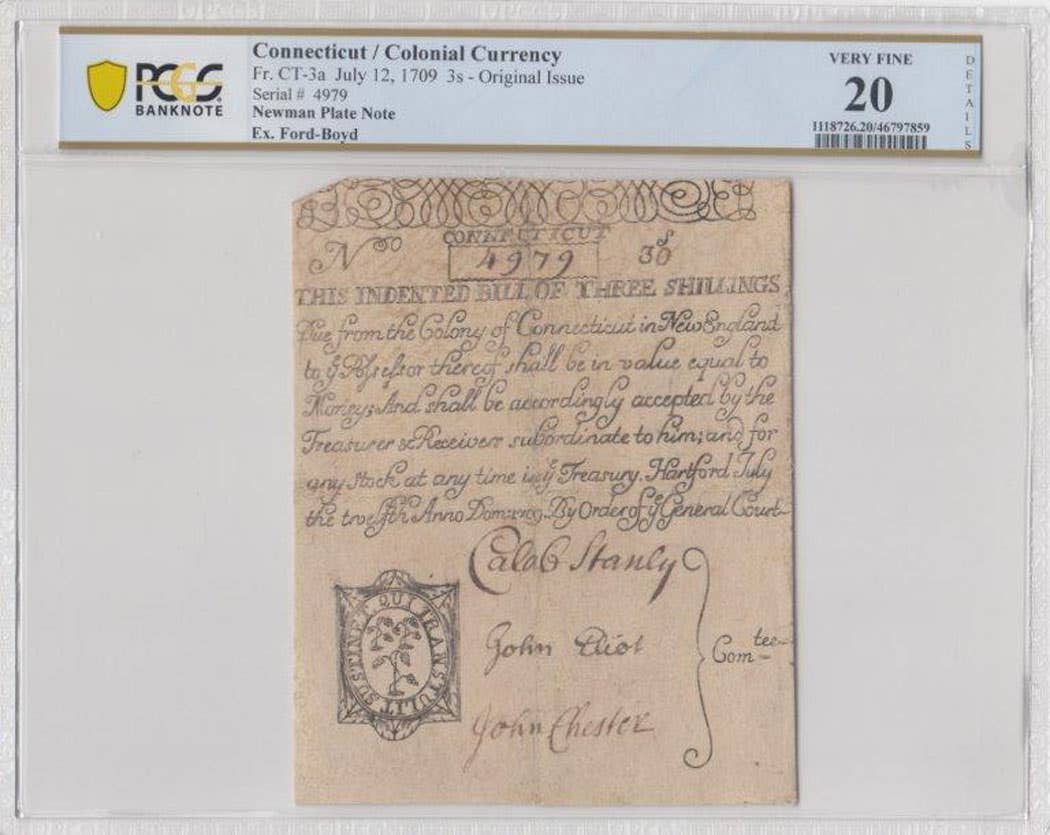 PCGS
BANKNOTE
Connecticut / Colonial Currency
Fr. CT-3a July 12, 1709 3s - Original Issue
Serial # 4979
Newman Plate Note
Ex. Ford-Boyd
VERY FINE
20
1118726.20/46797859
DETAILS
CONNECTICUT
No 4979 3s
THIS INDENTED BILL OF THREE SHILLINGS
Due from the Colony of Connecticut in New England
to ye Possessor thereof shall be in value equal to
Money; And shall be accordingly accepted by the
Treasurer & Receivers subordinate to him; and for
any Stock at any time in ye Treasury. Hartford July
the twelfth Anno Dom: 1709. By Order of ye General Court
Caleb Stanly
John Eliot
Com-tee
John Chester
SUSTINET QUI TRANSTULIT